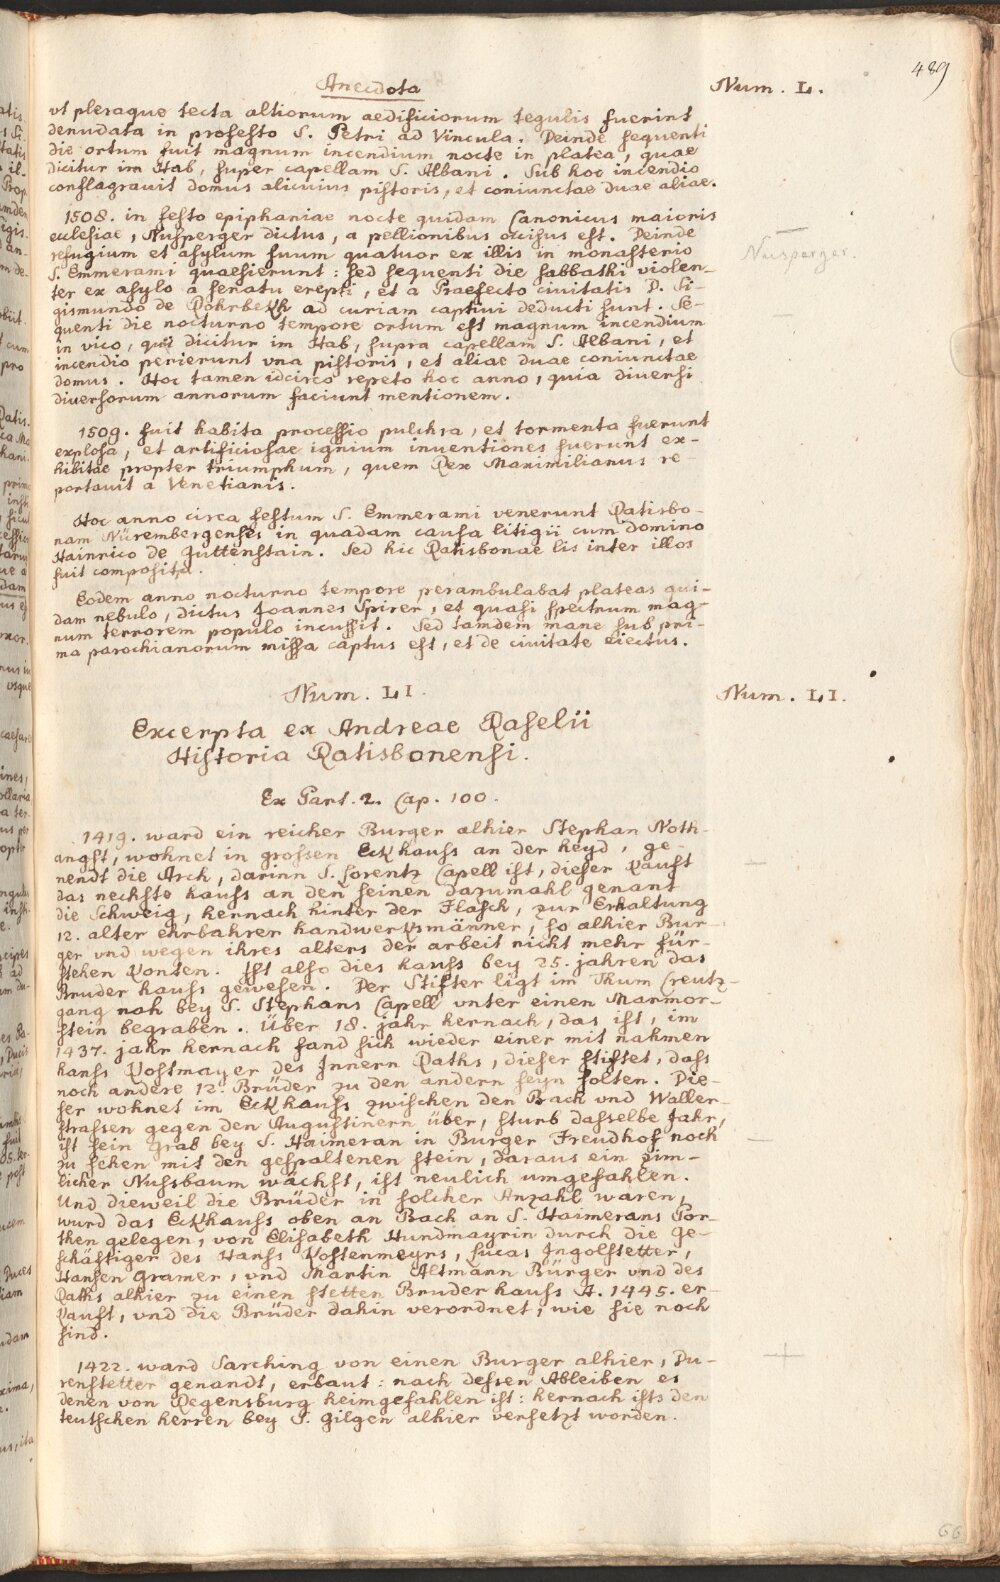 489
Anecdota
Num. L.
vt pleraque tecta altiorum aedificiorum tegulis fuerint
denudata in profesto S. Petri ad Vincula. Deinde sequenti
die ortum fuit magnum incendium nocte in platea, quae
dicitur im Stab, super capellam S. Albani. Sub hoc incendio
conflagrauit domus alicuius pistoris, et coniunctae duae aliae.
1508. in festo epiphaniae nocte quidam Canonicus maioris
ecclesiae, Nusperger dictus, a pellionibus occisus est. Deinde
refugium et asylum suum quatuor ex illis in monasterio
S. Emmerami quaesierunt: sed sequenti die sabbathi violen-
ter ex asylo a senatu erepti, et a Praefecto ciuitatis D. Si-
gismundo de Rohrbekh ad curiam captiui deducti sunt. Se-
quenti die nocturno tempore ortum est magnum incendium
in vico, qui dicitur im Stab, supra capellam S. Albani, et
incendio perierunt vna pistoris, et aliae duae coniunctae
domus. Hoc tamen idcirco repeto hoc anno, quia diuersi
diuersorum annorum faciunt mentionem.
Nusperger.
1509. fuit habita processio pulchra, et tormenta fuerunt
explosa, et artificiosae ignium inuentiones fuerunt ex-
hibitae propter triumphum, quem Rex Maximilianus re-
portauit a Venetianis.
Hoc anno circa festum S. Emmerami venerunt Ratisbo-
nam Nürembergenses in quadam causa litigii cum domino
Hainrico de Guttenstain. Sed hic Ratisbonae lis inter illos
fuit composita.
Eodem anno nocturno tempore perambulabat plateas qui-
dam nebulo, dictus Joannes Spirer, et quasi spectrum mag-
num terrorem populo incussit. Sed tamdem mane sub pri-
ma parochianorum missa captus est, et de ciuitate eiectus.
Num. LI.
Num. LI.
Excerpta ex Andreae Raselii
Historia Ratisbonensi.
Ex Part. 2. Cap. 100.
1419. ward ein reicher Burger alhier Stephan Noth-
angst, wohnet in grossen Eckhauss an der heyd, ge-
nendt die Arch, darinn S. Lorentz Capell ist, dieser kauft
das nechste hauss an den seinen dazumahl genant
die Schweig, hernach hinter der Flasch, zur Erhaltung
12. alter ehrbahrer handwerksmänner, so alhier Bur-
ger vnd wegen ihres alters der arbeit nicht mehr für-
stehen konten. Ist also dies hauss bey 25. jahren das
Bruder hauss gewesen. Der Stifter ligt im Thum Creutz-
gang nah bey S. Stephans Capell vnter einen Marmor-
stein begraben. Über 18. jahr hernach, das ist, im
1437. jahr hernach fand sich wieder einer mit nahmen
hanss Kostmayer des Innern Raths, dieser stiftet, dass
noch andere 12. Brüder zu den andern seyn solten. Die-
ser wohnet im Eckhauss zwischen den Bach vnd Waller-
strassen gegen den Augustinern über, sturb dasselbe Jahr,
ist sein grab bey S. Haimeran in Burger Freudhof noch
zu sehen mit den gespaltenen stein, daraus ein zim-
licher Nussbaum wächst, ist neulich umgefahlen.
Und dieweil die Brüder in solcher Anzahl waren,
wurd das Eckhauss oben an Bach an S. Haimerans Por-
then gelegen, von Elisabeth Hundmayrin durch die Ge-
schäftiger des Hanss Kostenmeyrs, Lucas Ingolstetter,
Hansen Gramer, vnd Martin Altmann Bürger vnd des
Raths alhier zu einen stetten Bruderhauss A. 1445. er-
kauft, vnd die Brüder dahin verordnet, wie sie noch
sind.
1422. ward Sarching von einen Burger alhier, Du-
renstetter genandt, erbaut: nach dessen Ableiben es
denen von Regensburg heimgefahlen ist: hernach ists den
teutschen herren bey S. Gilgen alhier versetzt worden.
66